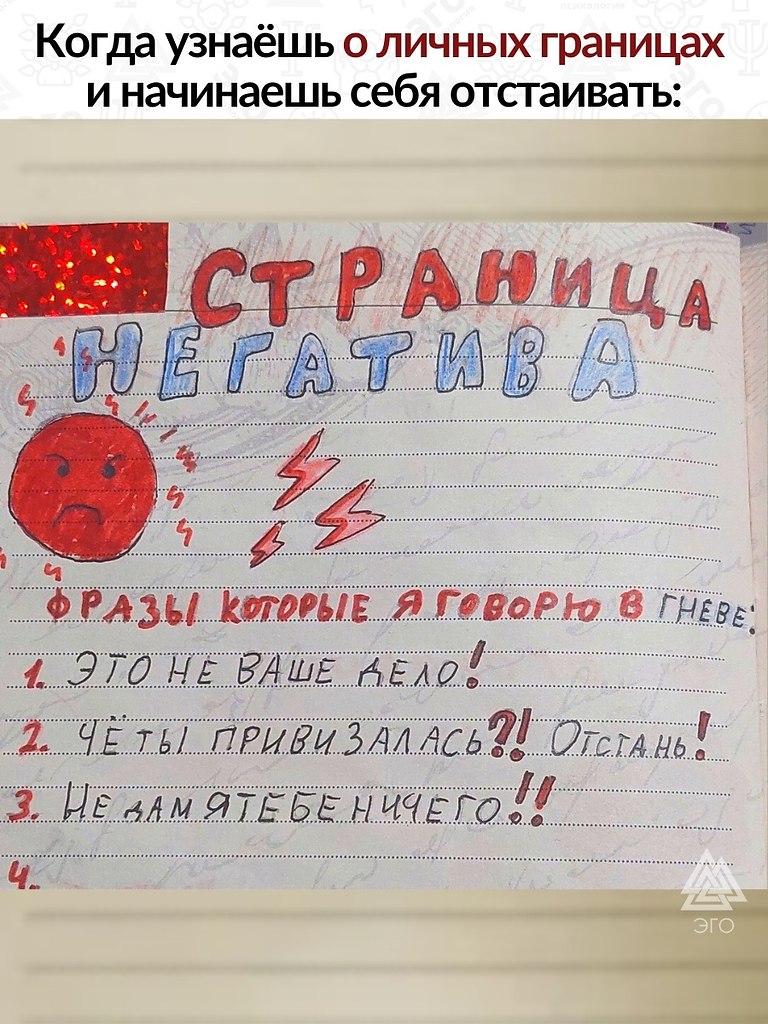 Когда узнаёшь о личных границах
и начинаешь себя отстаивать:
СТРАНИЦА
НЕГАТИВА
ФРАЗЫ КОТОРЫЕ Я ГОВОРЮ В ГНЕВЕ:
1. ЭТО НЕ ВАШЕ ДЕЛО!
2. ЧЁ ТЫ ПРИВИЗАЛАСЬ?! ОТСТАНЬ!
3. НЕ ДАМ Я ТЕБЕ НИЧЕГО!!
4.
ЭГО